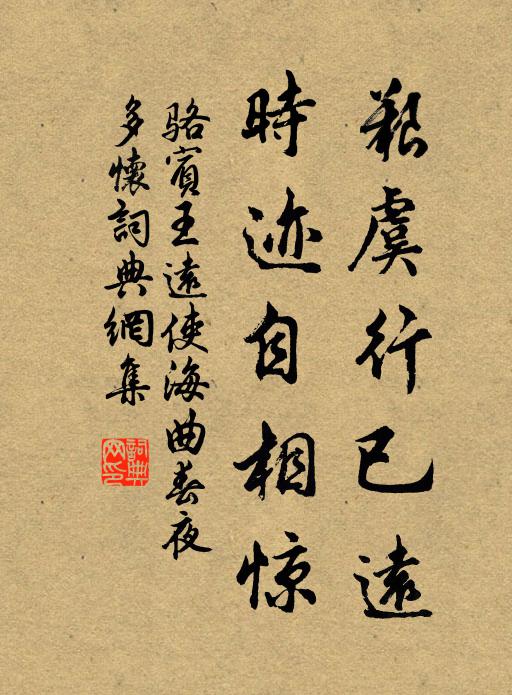 艱虞行已遠
時迹自相惊
駱賓王遠使海曲春夜
多懷詞典網集
詞典
网印